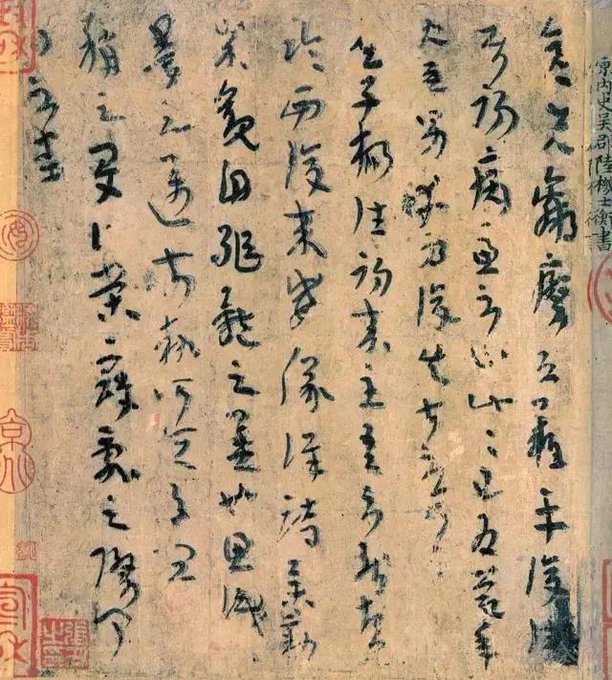 晉內史吳郡陸機士衡書
彥先羸瘵恐難平復往屬
初病慮不止此此已為慶承
使唯男幸為復失前憂耳
子楊往初來主吾不能盡
臨西復來威儀詳跱舉動
成觀自軀體之美也思識
量之邁前執所恒有宜
稱之夏榮寇亂之際聞
問不悉